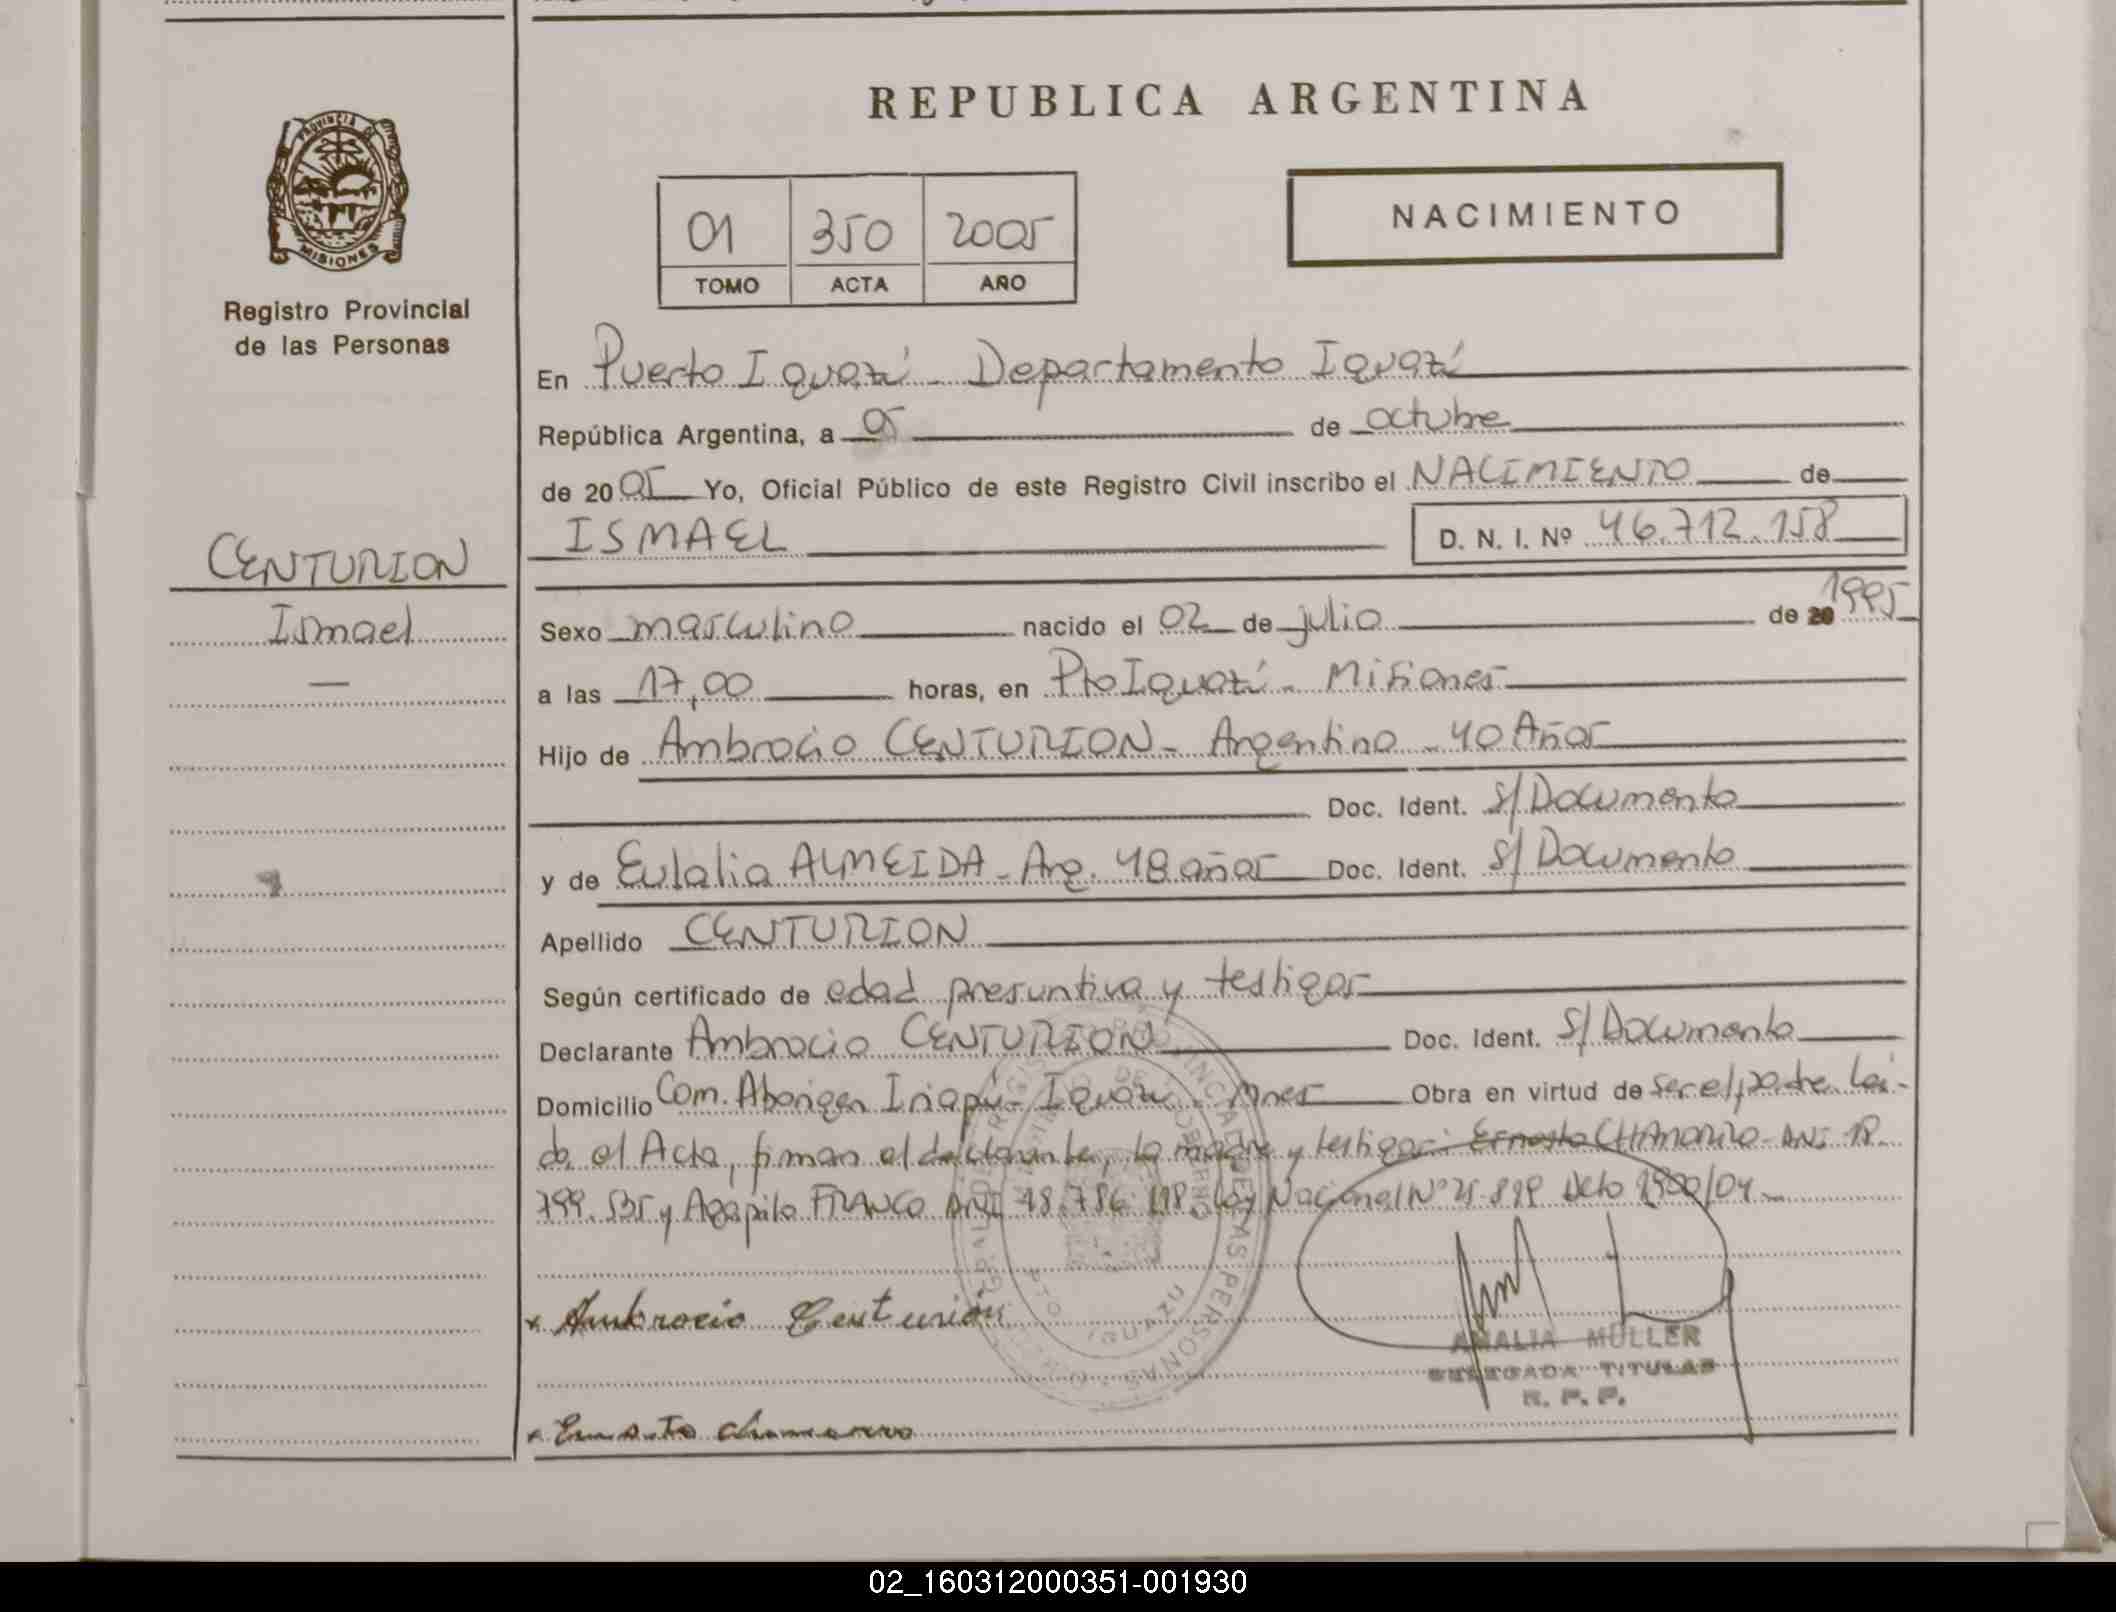 REPUBLICA ARGENTINA
PROVINCIA DE
MISIONES
Registro Provincial
de las Personas
01 350 2005
TOMO ACTA AÑO
NACIMIENTO
En Puerto Iguazú - Departamento Iguazú
República Argentina, a 05 de octubre
de 2005 Yo, Oficial Público de este Registro Civil inscribo el NACIMIENTO de
ISMAEL D. N. I. Nº 46.712.158
CENTURION
Ismael
—
Sexo masculino nacido el 02 de julio de 20 1995
a las 17,00 horas, en Pto Iguazú - Misiones
Hijo de Ambrocio CENTURION - Argentino - 40 Años
Doc. Ident. S/ Documento
y de Eulalia ALMEIDA - Arg. 48 años Doc. Ident. S/ Documento
Apellido CENTURION
Según certificado de edad presuntiva y testigos
Declarante Ambrocio CENTURION Doc. Ident. S/ Documento
Domicilio Com. Aborigen Iriapú - Iguazú - Mnes Obra en virtud de ser el padre Leí-
da el Acta, firman el declarante, la madre y testigos: Ernesto CHAMORRO - DNI 18.
799.535 y Agapito FRANCO DNI 18.786.118. Ley Nacional Nº 25.819 Dcto 1900/04.-
REGISTRO PROVINCIAL DE LAS PERSONAS
PTO. IGUAZU
x Ambrocio Centurión
AMALIA MÜLLER
DELEGADA TITULAR
R. P. P.
x Ernesto chamorro
02_160312000351-001930